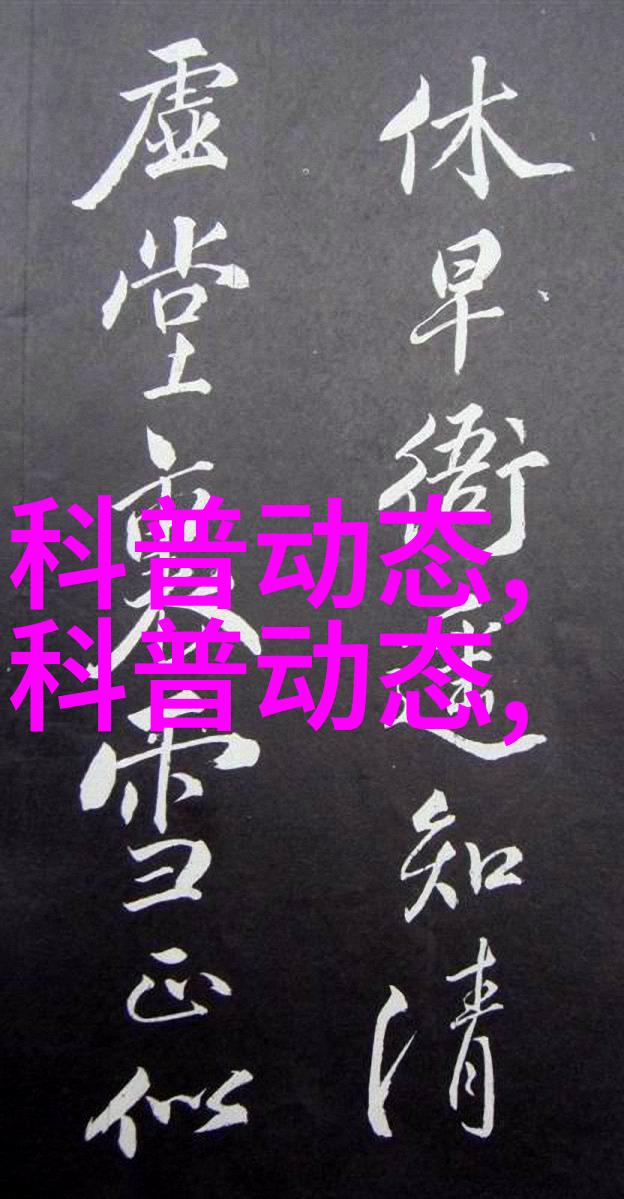 休早衙遥知清
虚堂暮雪正似
科普动态,
科普动态,